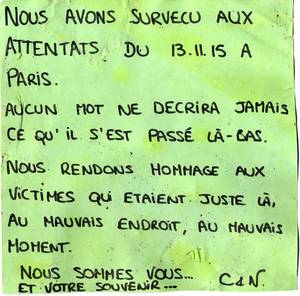 NOUS AVONS SURVECU AUX
ATTENTATS DU 13.11.15 A
PARIS.
AUCUN MOT NE DECRIRA JAMAIS
CE QU'IL S'EST PASSÉ LÀ-BAS.
NOUS RENDONS HOMMAGE AUX
VICTIMES QUI ETAIENT JUSTE LÀ,
AU MAUVAIS ENDROIT, AU MAUVAIS
MOMENT.
NOUS SOMMES VOUS...
ET VOTRE SOUVENIR... C&N.